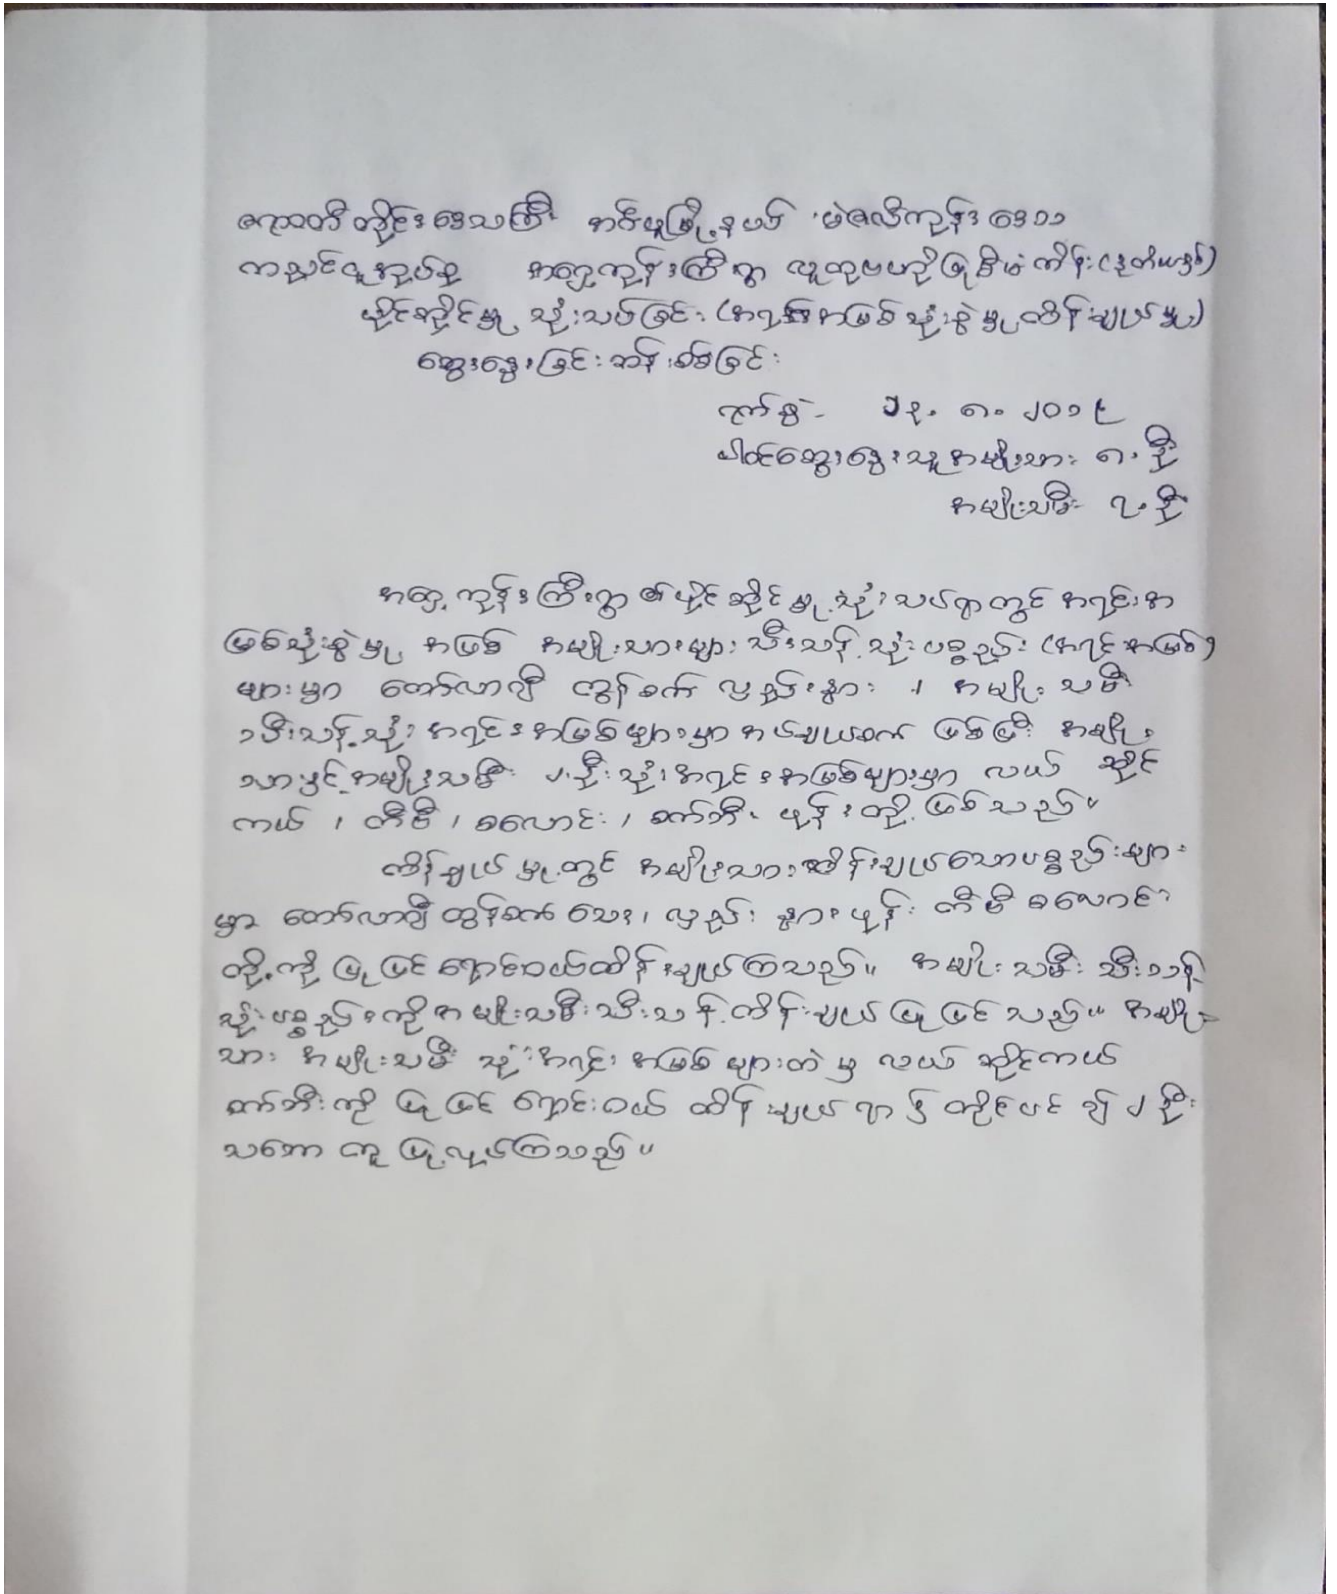 ဧရာဝတီတိုင်းဒေသကြီး အင်္ဂပူမြို့နယ် မဲဇလီကုန်းဒေသ
ကညင်ငူအုပ်စု အရှေ့ကုန်းကြီးရွာ လူထုဗဟိုပြုစီမံကိန်း(ဒုတိယနှစ်)
ပိုင်ဆိုင်မှု သုံးသပ်ခြင်း (အရင်းအမြစ်သုံးစွဲမှု ထိန်းချုပ်မှု)
ဆွေးနွေးခြင်းဆန်းစစ်ခြင်း
ရက်စွဲ - ၁၃.၈.၂၀၁၉
ပါဝင်ဆွေးနွေးသူအမျိုးသား ၈.ဦး
အမျိုးသမီး ၇.ဦး
အရှေ့ကုန်းကြီးရွာ၏ပိုင်ဆိုင်မှုသုံးသပ်ရာတွင် အရင်းအ
မြစ်သုံးစွဲမှု အဖြစ် အမျိုးသားများ သီးသန့်သုံးပစ္စည်း (အရင်းအမြစ်)
များမှာ တော်လာဂျီ ထွန်စက် လှည်းနွား ၊ အမျိုးသမီး
သီးသန့်သုံး အရင်းအမြစ်များမှာ အပ်ချုပ်စက် ဖြစ်ပြီး အမျိုး
သားနှင့်အမျိုးသမီး ၂ဦးသုံးအရင်းအမြစ်များမှာ လယ် ဆိုင်
ကယ် ၊ တီဗီ ၊ စလောင်း ၊ စက်ဘီး ဖုန်းတို့ဖြစ်သည်။
ထိန်းချုပ်မှုတွင် အမျိုးသားထိန်းချုပ်သောပစ္စည်းများ
မှာ တော်လာဂျီထွန်စက်သေး၊ လှည်း နွား ဖုန်း တီဗီ စလောင်း
တို့ကို ပြုပြင်ရောင်းဝယ်ထိန်းချုပ်ကြသည်။ အမျိုးသမီး သီးသန့်
သုံးပစ္စည်းကိုအမျိုးသမီးသီးသန့်ထိန်းချုပ်ပြုပြင်သည်။ အမျိုး
သား အမျိုးသမီး သုံးအရင်း အမြစ်များထဲမှ လယ် ဆိုင်ကယ်
စက်ဘီးကို ပြုပြင် ရောင်းဝယ် ထိန်းချုပ်ရာ၌ တိုင်ပင်၍ ၂ဦး
သဘောတူ ပြုလုပ်ကြသည်။